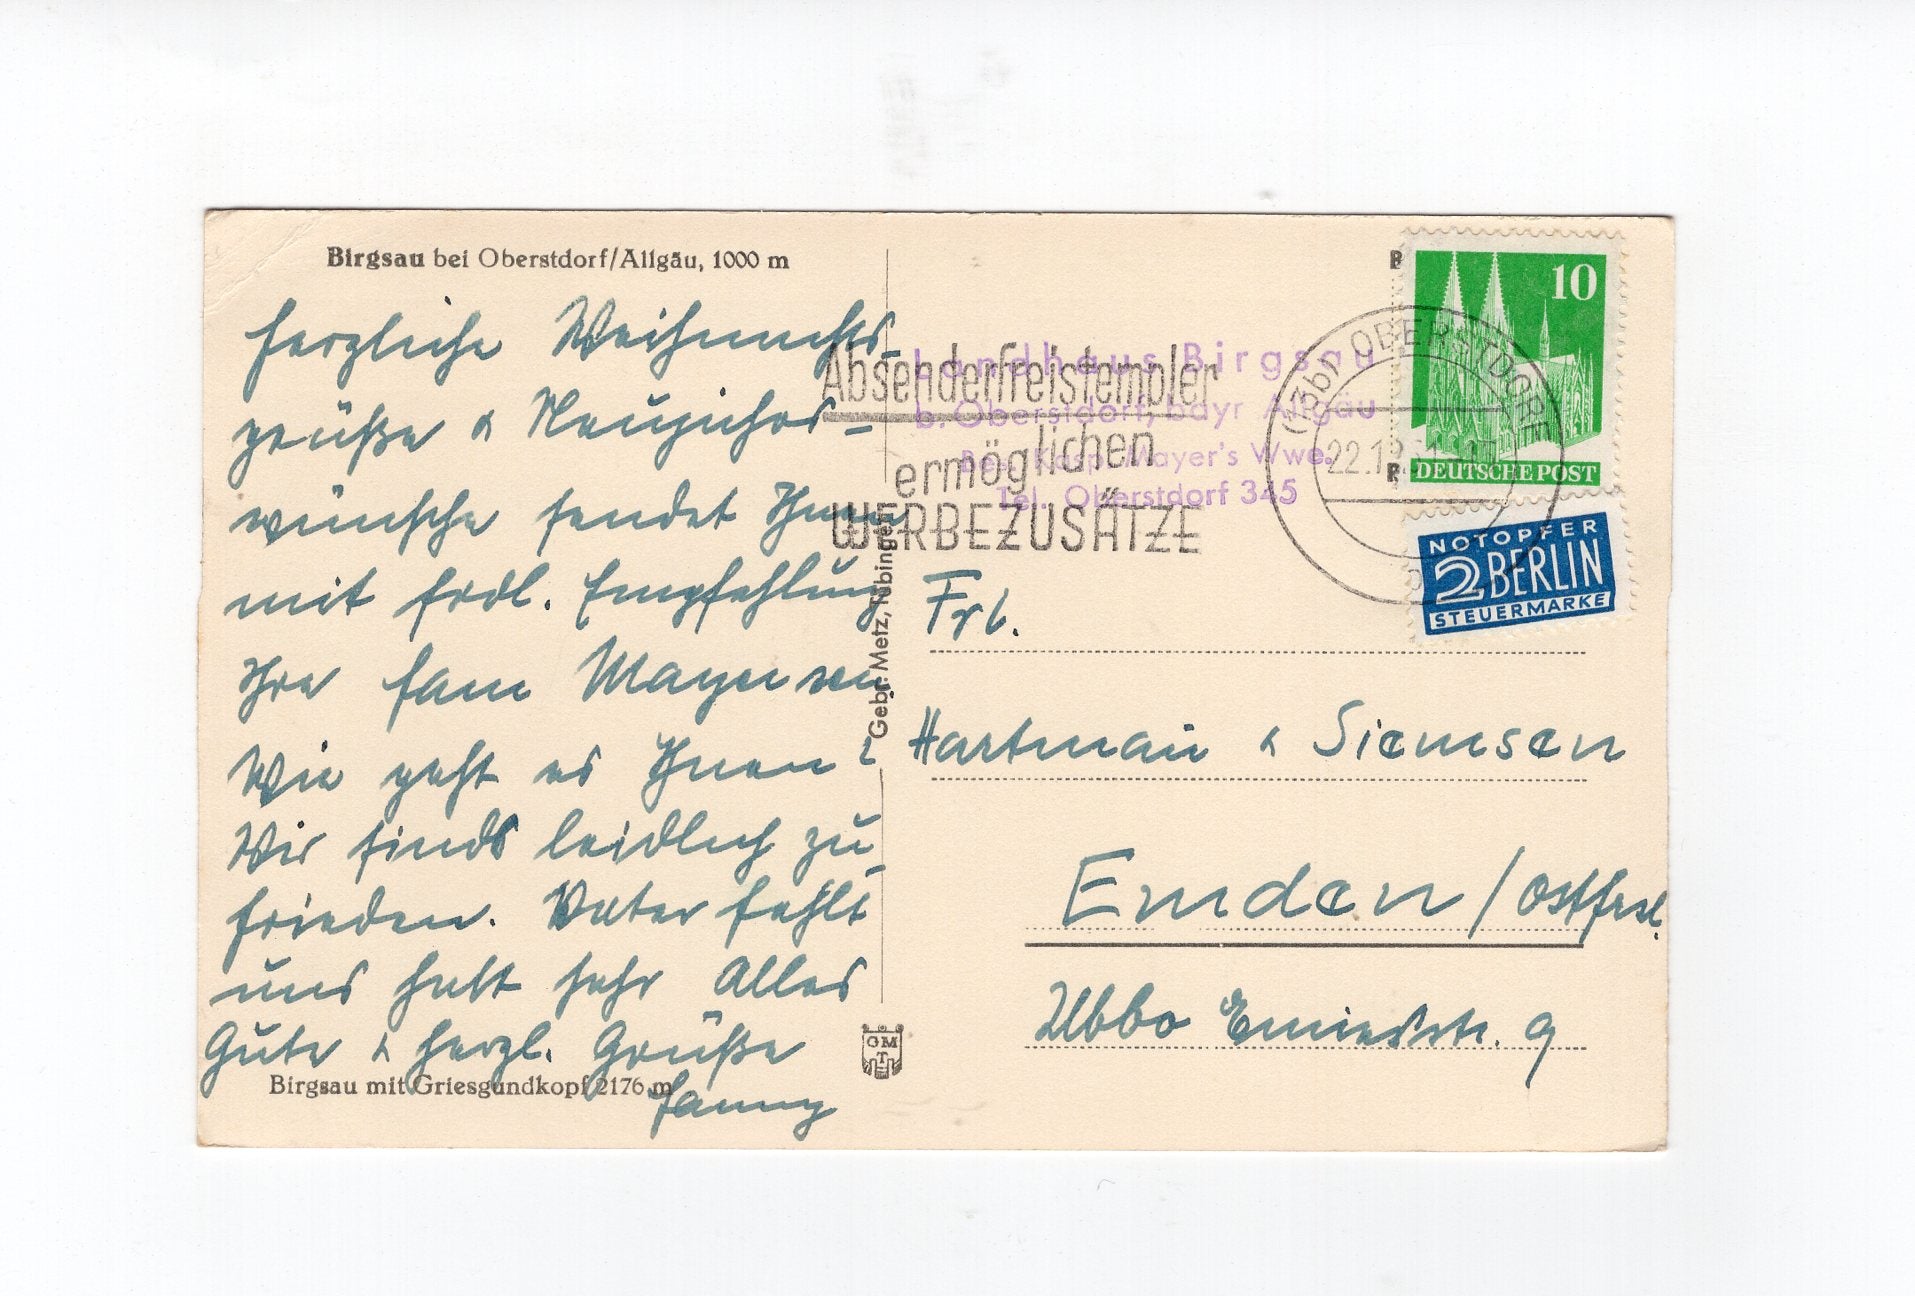 Birgsau bei Oberstdorf/Allgäu, 1000 m
herzliche Weihnachts-
grüße & Neujahrs-
wünsche sendet Ihnen
mit frdl. Empfehlung
Ihre Fam Mayer
Wie geht es Ihnen?
Wir sinds leidlich zu-
frieden. Vater fehlt
uns halt sehr Alles
Gute & herzl. Grüße
Fanny
Birgsau mit Griesgundkopf 2176 m
Gebr. Metz, Tübingen
GMT
Absenderfreistempler
ermöglichen
WERBEZUSÄTZE
Landhaus Birgsau
b. Oberstdorf, bayr Allgäu
Bes. Kasp. Mayer's Wwe.
Tel. Oberstdorf 345
(13b) OBERSTDORF
22.12.51
10
DEUTSCHE POST
NOTOPFER
2 BERLIN
STEUERMARKE
Frl.
Hartman & Siemsen
Emden / Ostfrsl.
Ubbo Emiusstr. 9